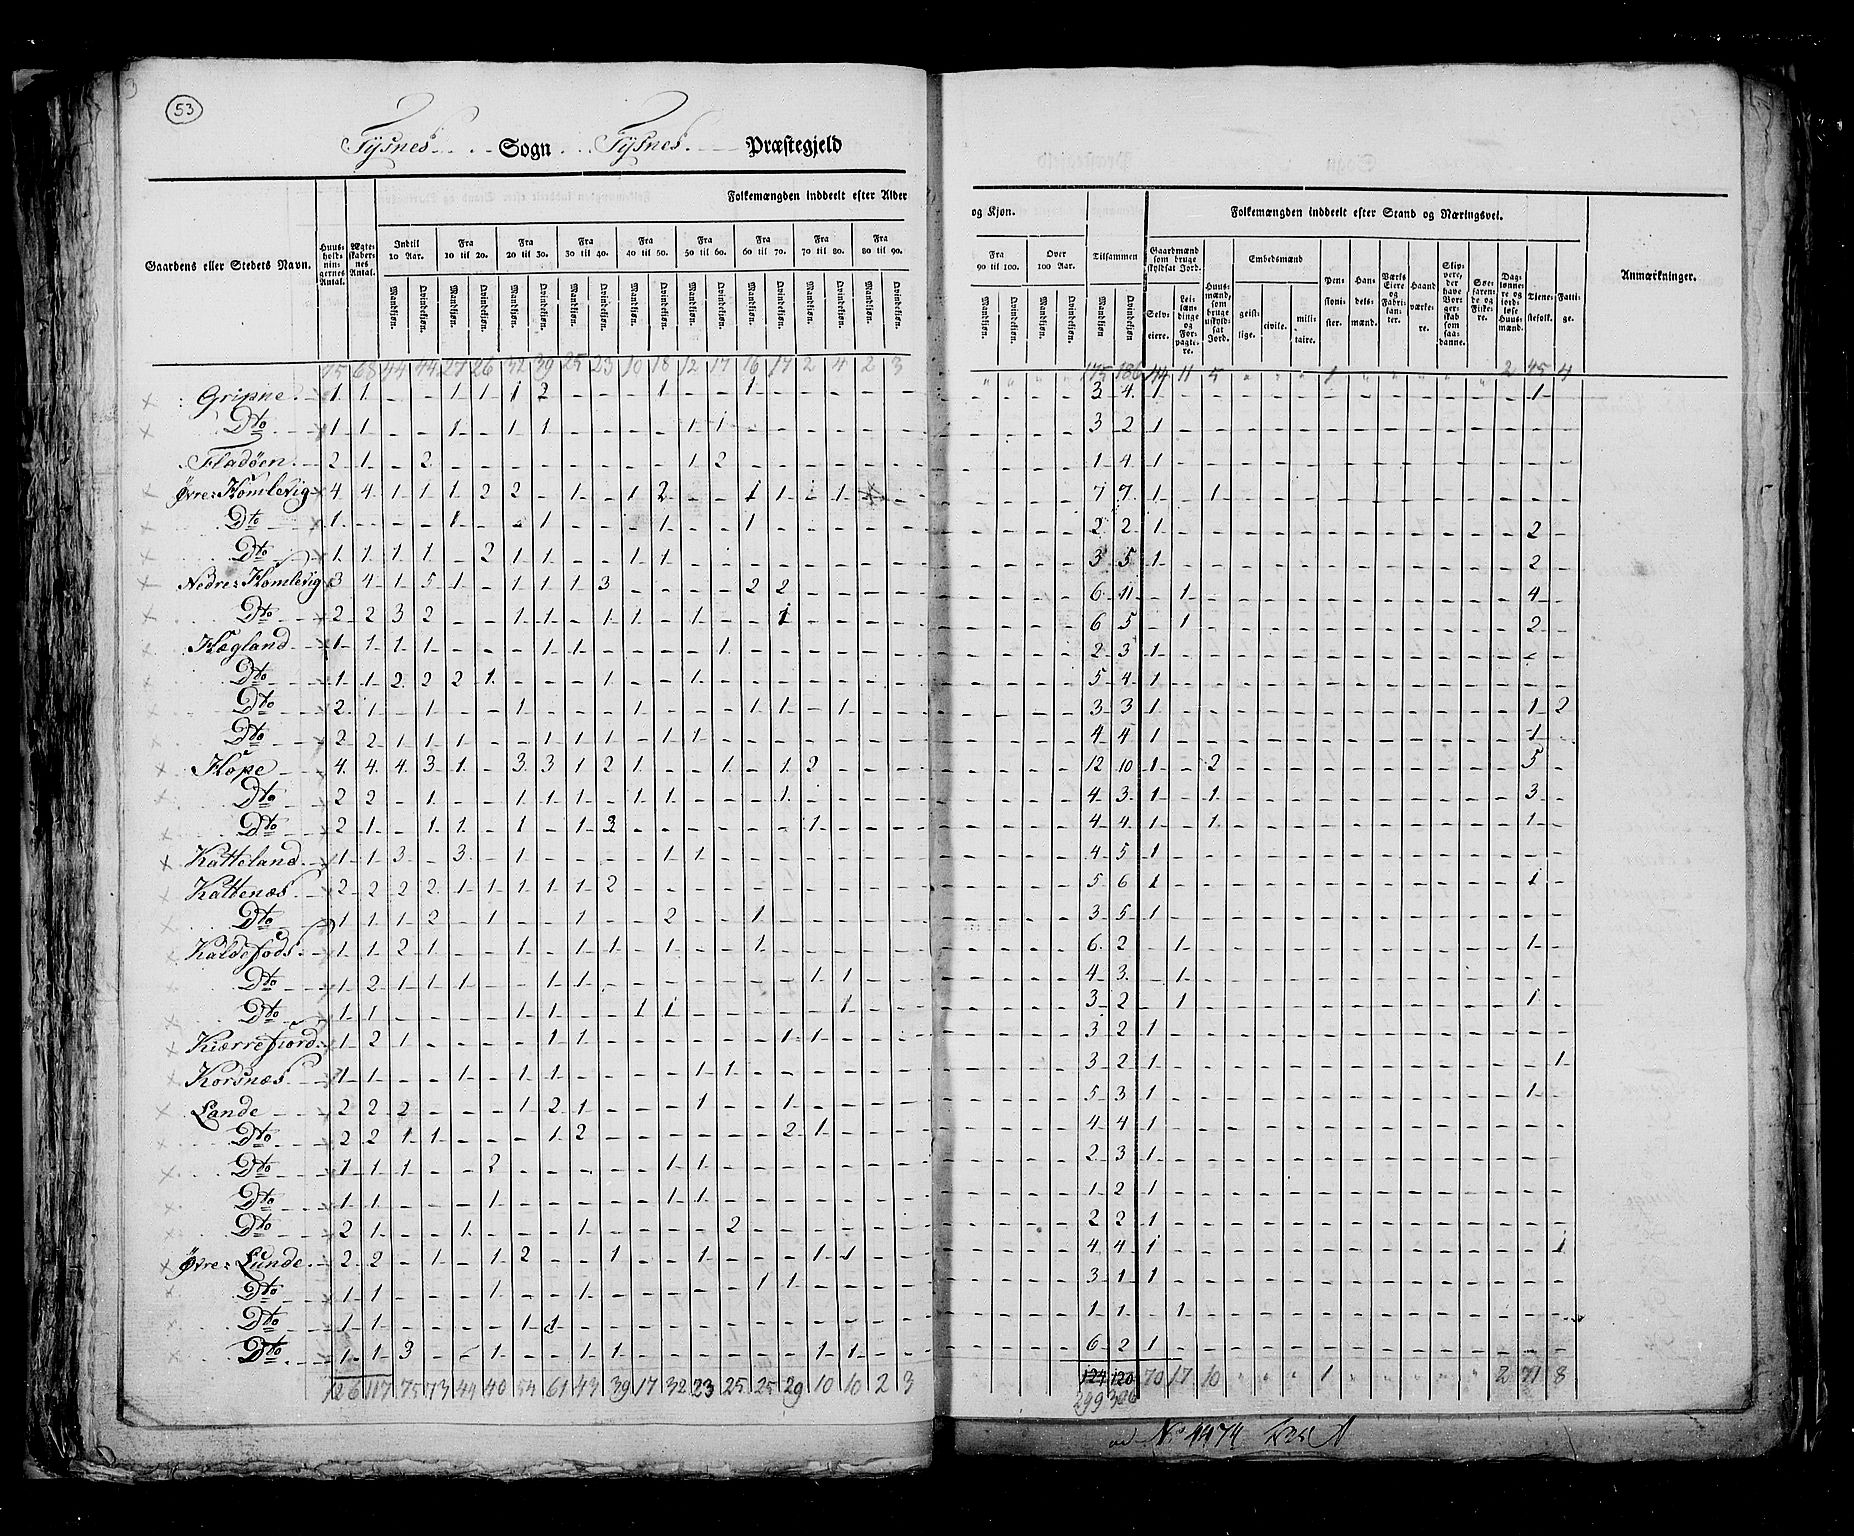 53
Tysnes Sogn Tysnes Præstegjeld
Folkemængden inddeelt efter Alder
og Kjøn.
Folkemængden inddeelt efter Stand og Næringsvei.
Gaardens eller Stedets Navn.
Huus-holdnin-gernes Antal.
Ægte-skaber-nes Antal.
Indtil 10 Aar.
Fra 10 til 20.
Fra 20 til 30.
Fra 30 til 40.
Fra 40 til 50.
Fra 50 til 60.
Fra 60 til 70.
Fra 70 til 80.
Fra 80 til 90.
Fra 90 til 100.
Over 100 Aar.
Tilsammen
Gaardmænd som bruge skyldsat Jord.
Embedsmænd
Anmærkninger.
75 68 44 44 27 26 32 39 25 23 10 18 12 17 16 17 2 4 2 3 175 186 14 11 5 1 2 45 4
Gripne 1 1 - - 1 1 1 2 - - - 1 - - 1 - - - - - 3 4 1 1
Dto 1 1 - - 1 - 1 1 - - - - 1 1 - - - - - - 3 2 1
Fladøen 2 1 - 2 - - - - - - - - 1 2 - - - - - - 1 4 1
Øvre Homlevig 4 4 1 1 1 2 2 - 1 - 1 2 - - 1 1 1 1 7 7 1 - 1
Dto 1 - - - 1 - - 1 - - - 1 - - 1 - - - - - 2 2 1 2
Dto 1 1 1 1 - 2 1 1 - - 1 1 - - - - - - - - 3 5 1 2
Nedre Homlevig 3 4 1 5 1 - 1 1 1 3 - - - - 2 2 - - - - 6 11 - 1 4
Dto 2 2 3 2 - - 1 1 - 1 1 - 1 - - 1 - - - - 6 5 - 1 2
Hægland 1 1 1 1 - - - 1 1 - - - - 1 - - - - - - 2 3 1
Dto 1 1 2 2 2 1 - - - 1 - - 1 - - - - - - - 5 4 1
Dto 2 1 - 1 - - 1 - - - 1 - - - 1 1 - 1 - - 3 3 1 1 2
Dto 2 2 1 1 1 - - 1 1 1 - 1 1 - - - - - - - 4 4 1 1
Hope 4 4 4 3 1 - 3 3 1 2 1 - - 1 - 1 2 - - - 12 10 1 - 2 5
Dto 2 2 - 1 - - 1 1 1 - 1 1 - - - 1 - - - - 4 3 1 - 1 3
Dto 2 1 - 1 1 - 1 - 1 3 - - - - - - 1 - - - 4 4 1 - 1 1
Katteland 1 1 3 - 3 - 1 - - - - 1 1 - - - - - - - 4 5 1
Kattenæs 2 2 2 2 1 1 1 1 1 2 - - - - - - - - - - 5 6 1 1
Dto 1 1 1 2 - 1 - - 1 - - 2 - - 1 - - - - - 3 5 1
Kaldefods 1 1 2 1 - - 1 - 1 1 - 1 - - 1 - - - - - 6 2 - 1 1
Dto 1 2 1 1 1 - - 1 1 - - - - - - - 1 1 - - 4 3 - 1
Dto 1 1 - - - - 1 1 - - 1 1 - - - - - 1 - - 3 2 - 1 1
Kiærrefiord 1 2 1 - - - - 1 1 - - - - - - 1 1 - - - 3 2 1
Korsnæs 1 1 - - 1 - 1 1 - - - - 1 1 - - - - - - 3 2 1 1
Lande 2 2 2 - - - 1 2 1 - - - 1 - - 1 - - - - 5 3 1 1
Dto 2 2 1 1 - - - 1 2 - - - - - - 2 1 - - - 4 4 1
Dto 1 1 1 - - 2 - - - - - 1 1 - - - - - - - 2 3 1
Dto 1 1 - - - 1 - - - - - 1 1 - - - - - - - 1 2 1
Dto 2 1 - - 1 - - - 1 - - - - 2 - - - - - - 2 2 1
Øvre Lunde 2 2 - 1 - 1 2 - - 1 - - 1 - - - 1 1 - - 4 4 1 1
Dto 1 1 - - - 1 - - 1 - - - - - 1 1 - - - - 3 1 1
Dto 1 1 - - - - 1 1 - - - - - - - - - - - - 1 1 - 1
Dto 1 1 3 - - 1 - - 1 1 - - - - - - 1 1 - - 6 2 1
126 117 75 73 44 40 54 61 43 39 17 32 23 25 25 29 10 10 2 3 124 120 70 17 10 1 2 71 8
299 306
ad No 1474